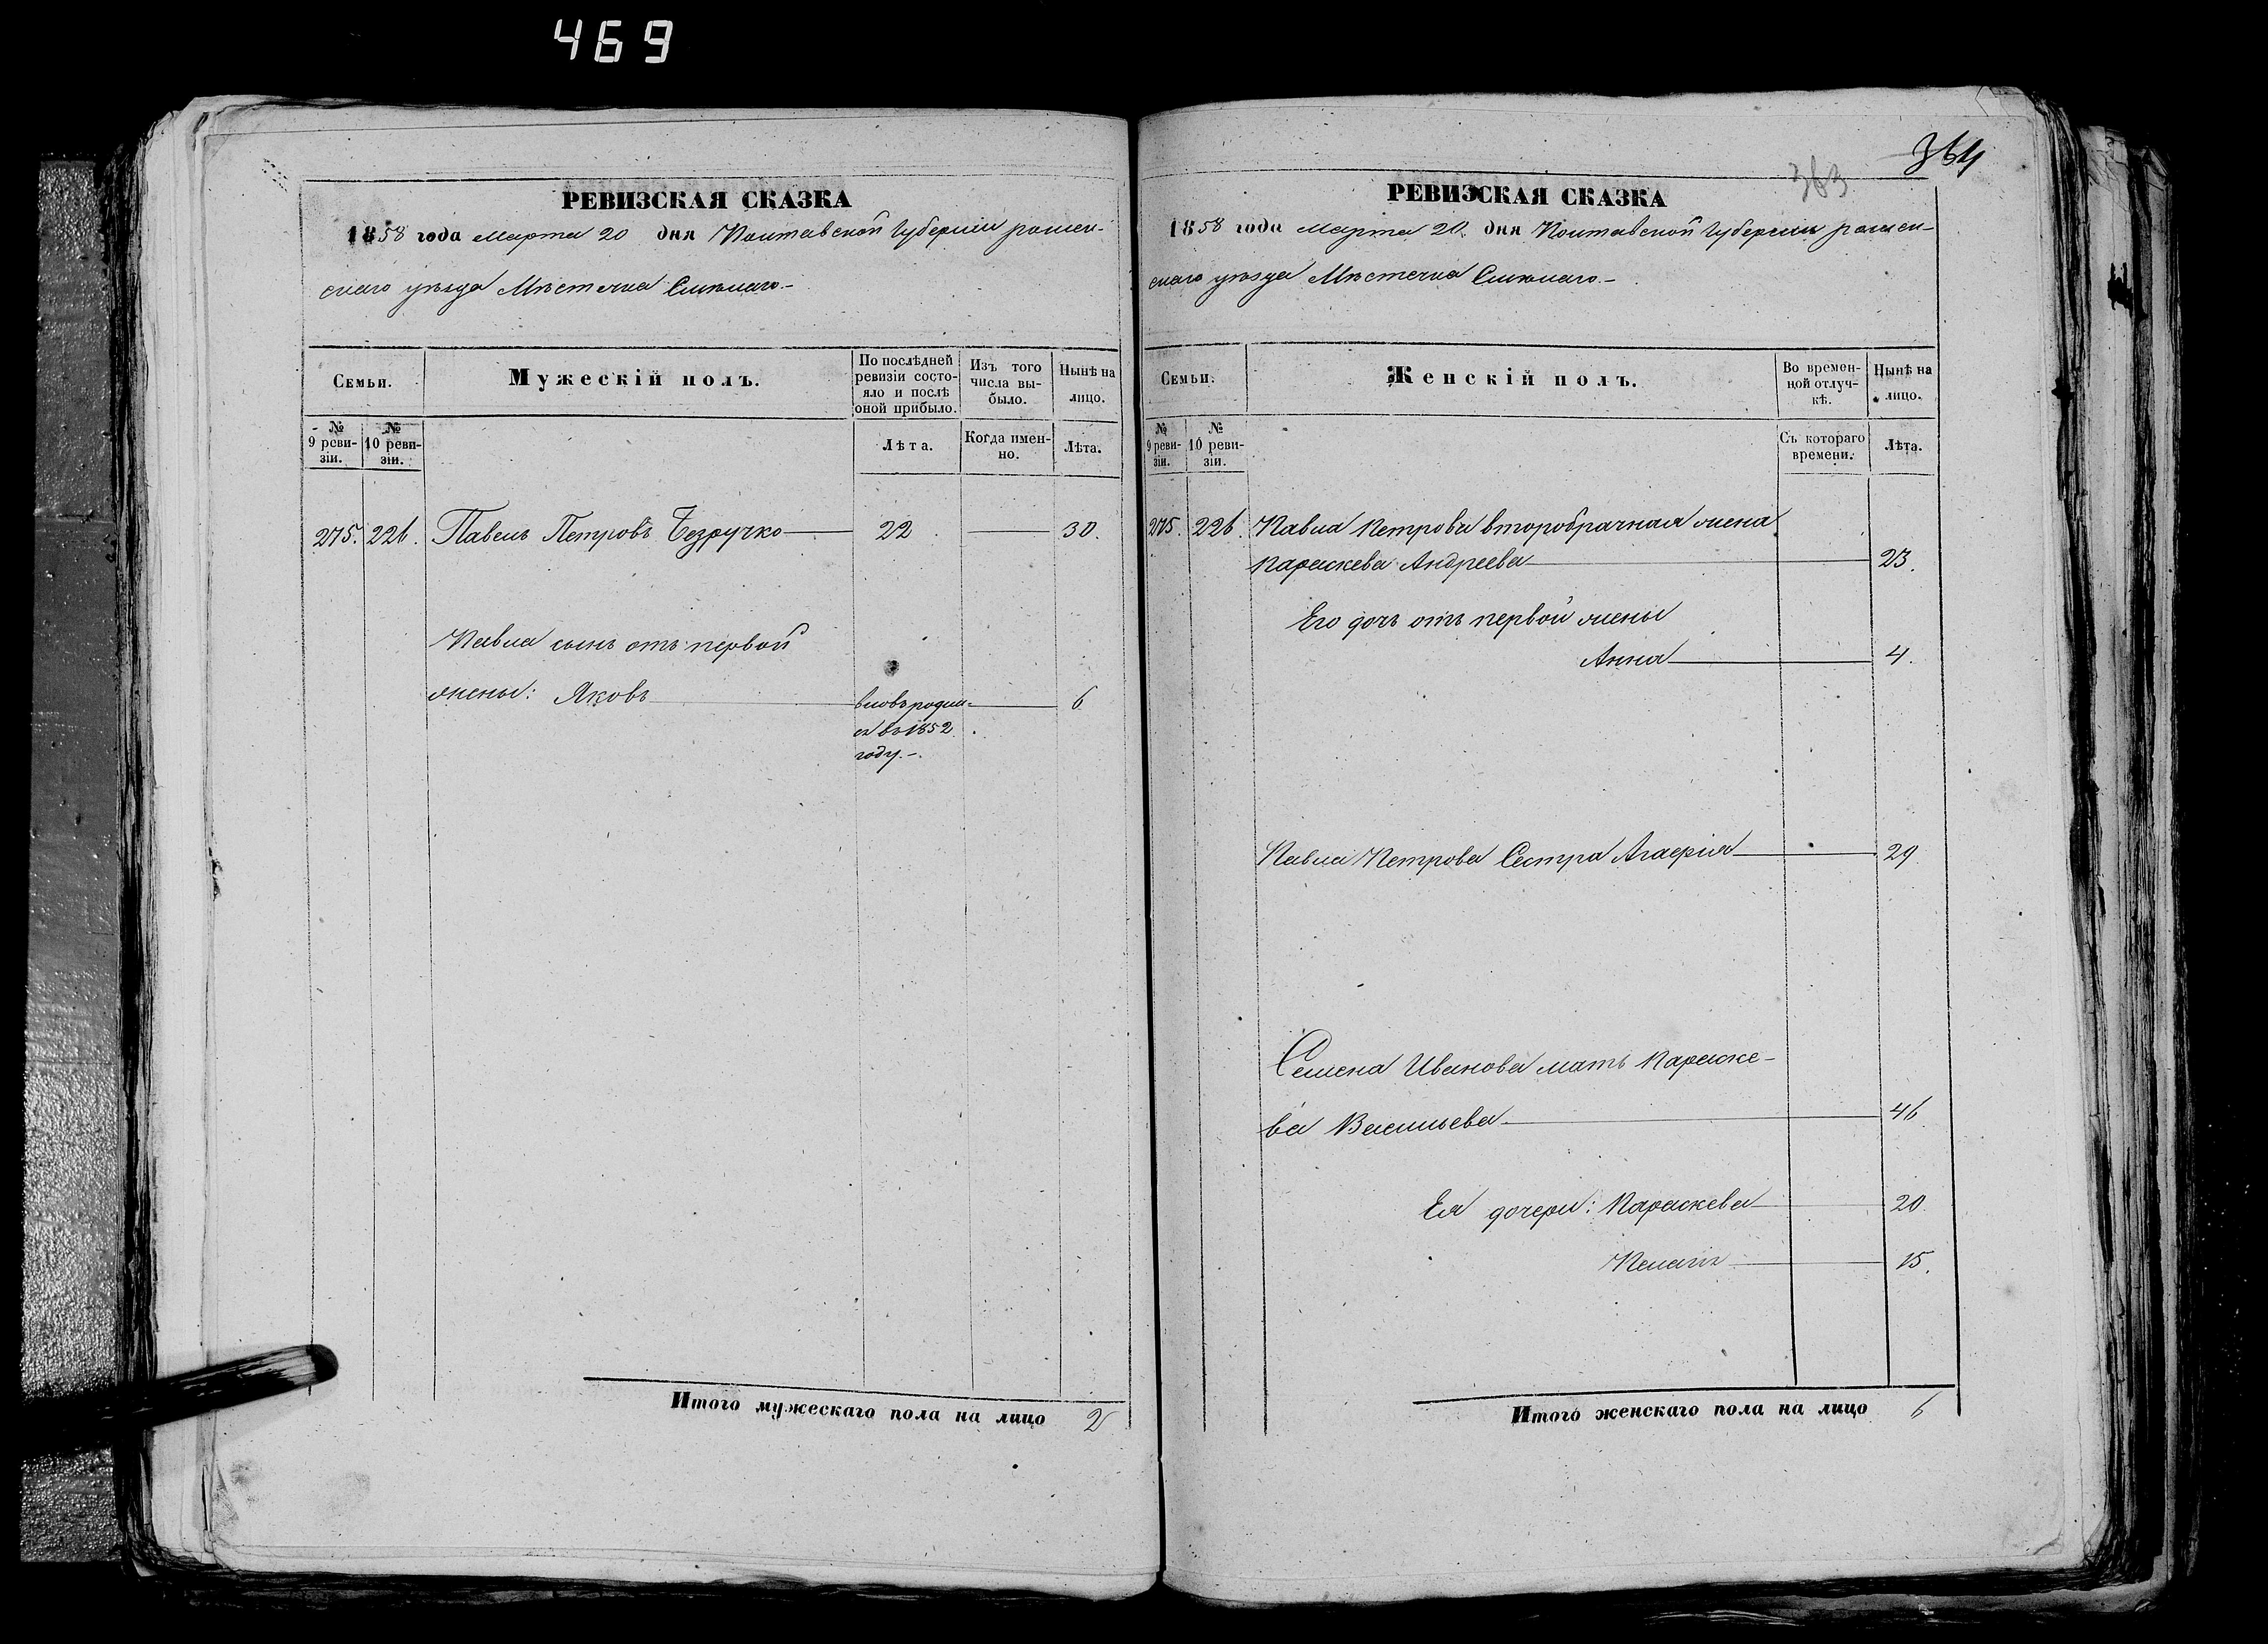 469
364
363
РЕВИЗСКАЯ СКАЗКА
1858 года Марта 20 дня Полтавской Губерніи ромен-
скаго уѣзда Мѣстечка Смѣлаго.-
Семьи.
Мужескій полъ.
По послѣдней ревизіи состо-яло и послѣ оной прибыло.
Изъ того числа вы-было.
Нынѣ на лицо.
№ 9 реви-зіи.
№ 10 реви-зіи.
Лѣта.
Когда имен-но.
Лѣта.
275. 226. Павелъ Петровъ Безручко 22 30.
Павла сынъ отъ первой
жены: Яковъ вновь родил- 6
ся въ 1852
году.-
Итого мужескаго пола на лицо 2
РЕВИЗСКАЯ СКАЗКА
1858 года Марта 20. дня Полтавской Губерніи ромен-
скаго уѣзда Мѣстечка Смѣлаго.-
Семьи.
Женскій полъ.
Во времен-ной отлуч-кѣ.
Нынѣ на лицо.
№ 9 реви-зіи.
№ 10 реви-зіи.
Съ котораго времени.
Лѣта.
275. 226. Павла Петрова второбрачная жена
Параскева Андреева 23.
Его дочь отъ первой жены
Анна 4.
Павла Петрова Сестра Агафія 29
Семена Иванова мать Параске-
ва Васильева 46
Ея дочери: Параскева 20.
Пелагія 15.
Итого женскаго пола на лицо 6